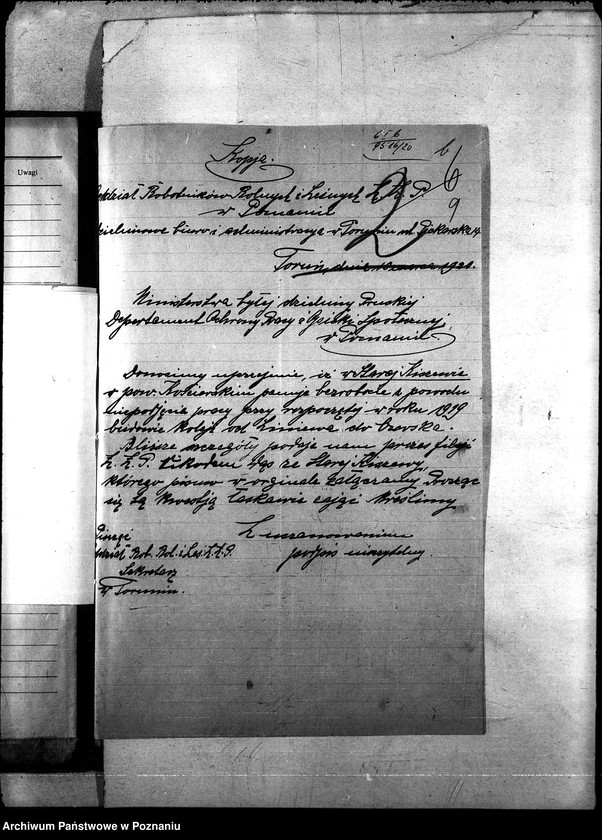 6 I 6
9516/20
6
6
9
Kopja.
Wydział Robotników Rolnych i Leśnych Z. Z. P.
w Poznaniu
dzielnicowe biuro i administracja w Toruniu ul. Piekarska
2
Toruń, dnia marca 1920.
Uwagi
Ministerstwa byłej dzielnicy Pruskiej
Departament Ochrony Pracy i Opieki Społecznej
w Poznaniu
Donosimy uprzejmie, iż w Starej Kiszewie
w pow. Kościerskim panuje bezrobocie z powodu
niepodjęcia pracy przy rozpoczętej w roku 1919
budowie kolei od do Czerska.
Bliższe szczegóły podaje nam prezes filji
Z. Z. P. ze Starej Kiszewy,
którego pismo w orginale załączamy Prosząc
się tą kwestją łaskawie zająć kreślimy
Z uszanowaniem
podpis nieczytelny.
Pieczęć
Wydział Rob. Rol. i Leś. Z. Z. P.
Sekretarz
w Toruniu.
Archiwum Państwowe w Poznaniu